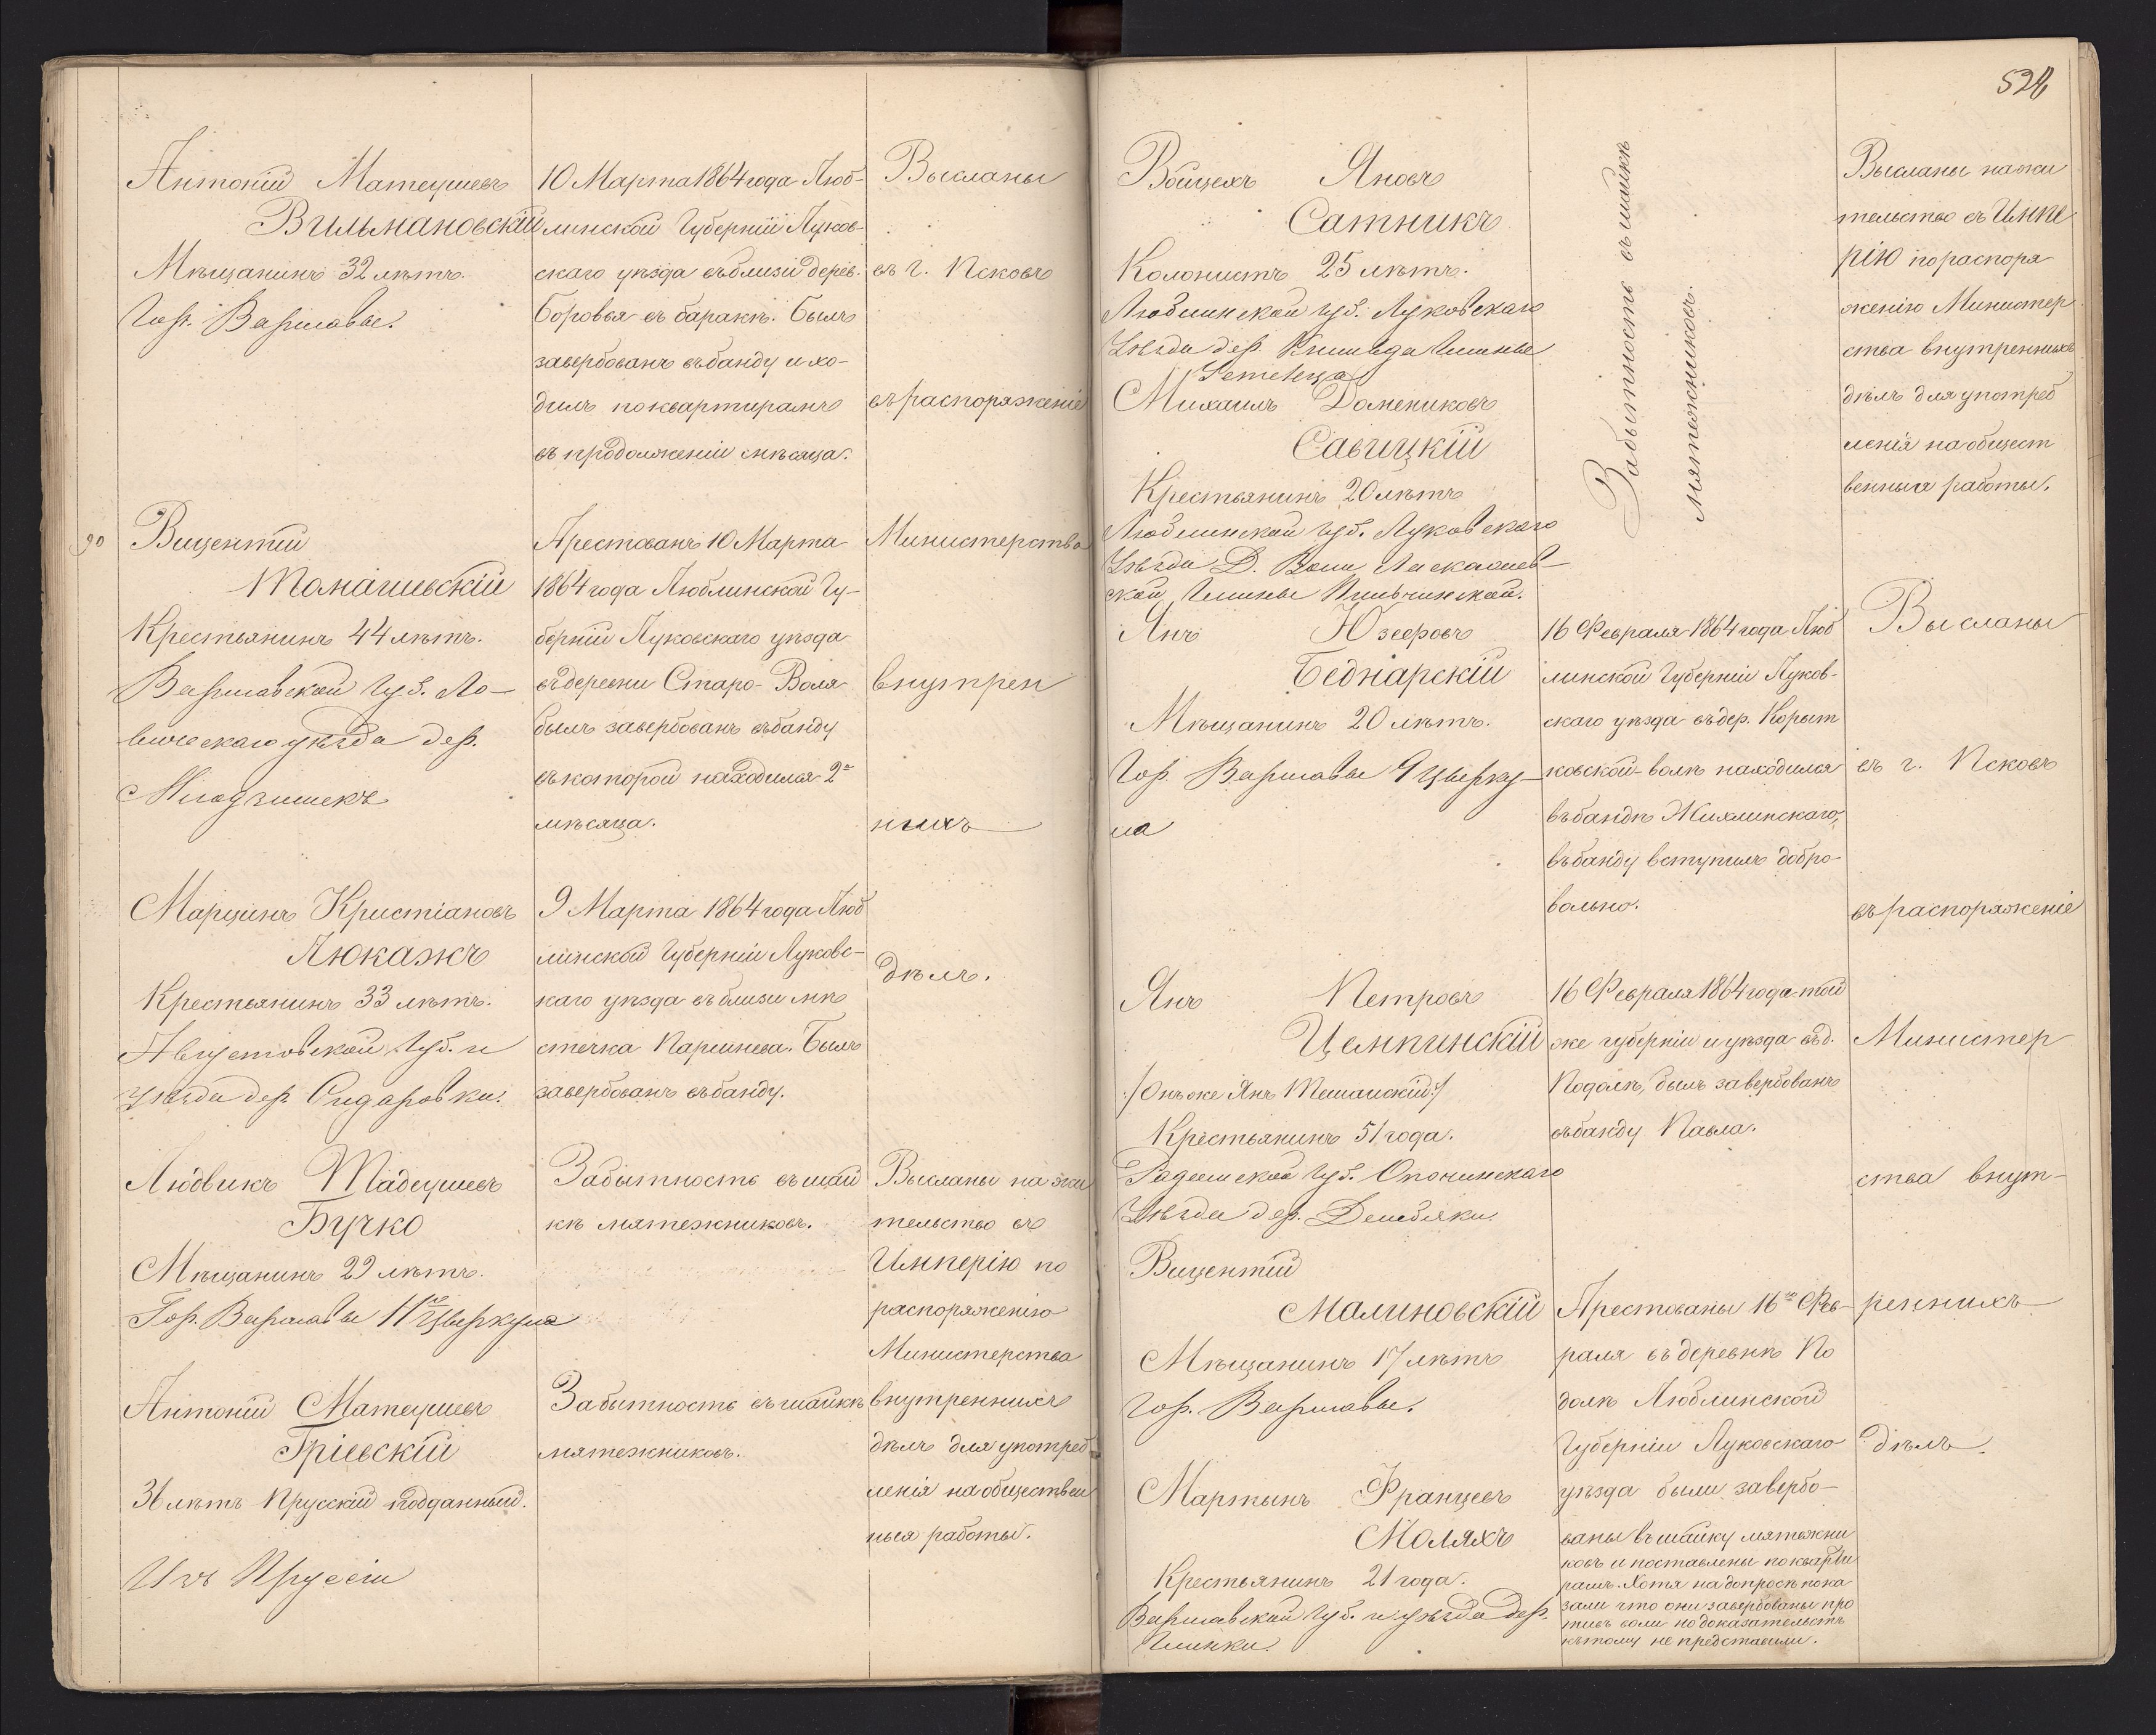 Антоній Матеушевъ
Вильмановскій
Мѣщанинъ 32 лѣтъ.
Гор. Варшавы.
10 Марта 1864 года Люб-
линской Губерніи Луков-
скаго уѣзда въ близи дерев.
Боровья въ баракѣ. Былъ
завербованъ въ банду и хо-
дилъ по квартирамъ
въ продолженіи мѣсяца.
Высланы
въ г. Псковъ
въ распоряженіе
90
Вицентій
Крестьянинъ 44 лѣтъ.
Варшавской Губ. Ло-
вичскаго уѣзда дер.
Арестованъ 10 Марта
1864 года Люблинской Гу-
берніи Луковскаго уѣзда
въ деревни Старо-Воля
былъ завербованъ въ банду
въ которой находился 2ª
мѣсяца.
Министерства
внутрен
нихъ
Марцинъ Кристіановъ
Люкажъ
Крестьянинъ 33 лѣтъ.
Августовской Губ. и
уѣзда дер. Сидаровки.
9 Марта 1864 года Люб
линской Губерніи Луковс-
каго уѣзда въ близи мѣ
стечка Паршнева. Былъ
завербованъ въ банду.
дѣлъ.
Людвикъ Тадеушевъ
Бучко
Мѣщанинъ 29 лѣтъ.
Гор. Варшавы 11го Цыркула
За бытность въ шай
кѣ мятежниковъ.
Высланы на жи
тельство въ
Имперію по
распоряженію
Министерства
внутреннихъ
дѣлъ для употреб
ленія на обществен
ныя работы.
Антоній Матеушевъ
Гріевскій
36 лѣтъ Прусскій подданный.
Изъ Пруссіи
За бытность въ шайкѣ
мятежниковъ.
528
Войцехъ Яновъ
Сатникъ
Колонистъ 25 лѣтъ.
Люблинской Губ. Луковскаго
Уѣзда дер. Гмины
Михаилъ Домениковъ
Савицкій
Крестьянинъ 20 лѣтъ
Люблинской Губ. Луковскаго
Уѣзда Д. Воли
ской, Гмины
За бытность въ шайкѣ
мятежниковъ.
Высланы на жи
тельство въ Импе
рію по распоря
женію Министер
ства внутреннихъ
дѣлъ для употреб
ленія на общест
венныя работы.
Янъ Юзефовъ
Беднарскій
Мѣщанинъ 20 лѣтъ.
Гор. Варшавы 9 Цырку-
ла
16 Февраля 1864 года Люб
линской Губерніи Луков-
скаго уѣзда въ дер. Корыт
ковской-волѣ находился
въ бандѣ Жихлинскаго,
въ банду вступилъ добро-
вольно.
Высланы
въ г. Псковъ
въ распоряженіе
Янъ Петровъ
Цемпинскій
Крестьянинъ 51 года.
Радомской Губ. Опочинскаго
Уѣзда дер.
16 Февраля 1864 года той
же губерніи и уѣзда въ д.
Подолѣ, былъ завербованъ
въ банду Павла.
Министер
ства внут-
реннихъ
дѣлъ.
Вицентій
Малиновскій
Мѣщанинъ 17 лѣтъ
Гор. Варшавы.
Арестованы 16го Фев-
раля въ деревнѣ По
долѣ Люблинской
Губерніи Луковскаго
уѣзда были завербо-
ваны въ шайку мятежни
ковъ и поставлены по кварти
рамъ. Хотя на допросѣ пока
зали что они завербованы про
тивъ воли но доказательствъ
къ тому не представили.
Мартынъ Францевъ
Моляхъ
Крестьянинъ 21 года.
Варшавской Губ. и уѣзда дер.
Глинки.